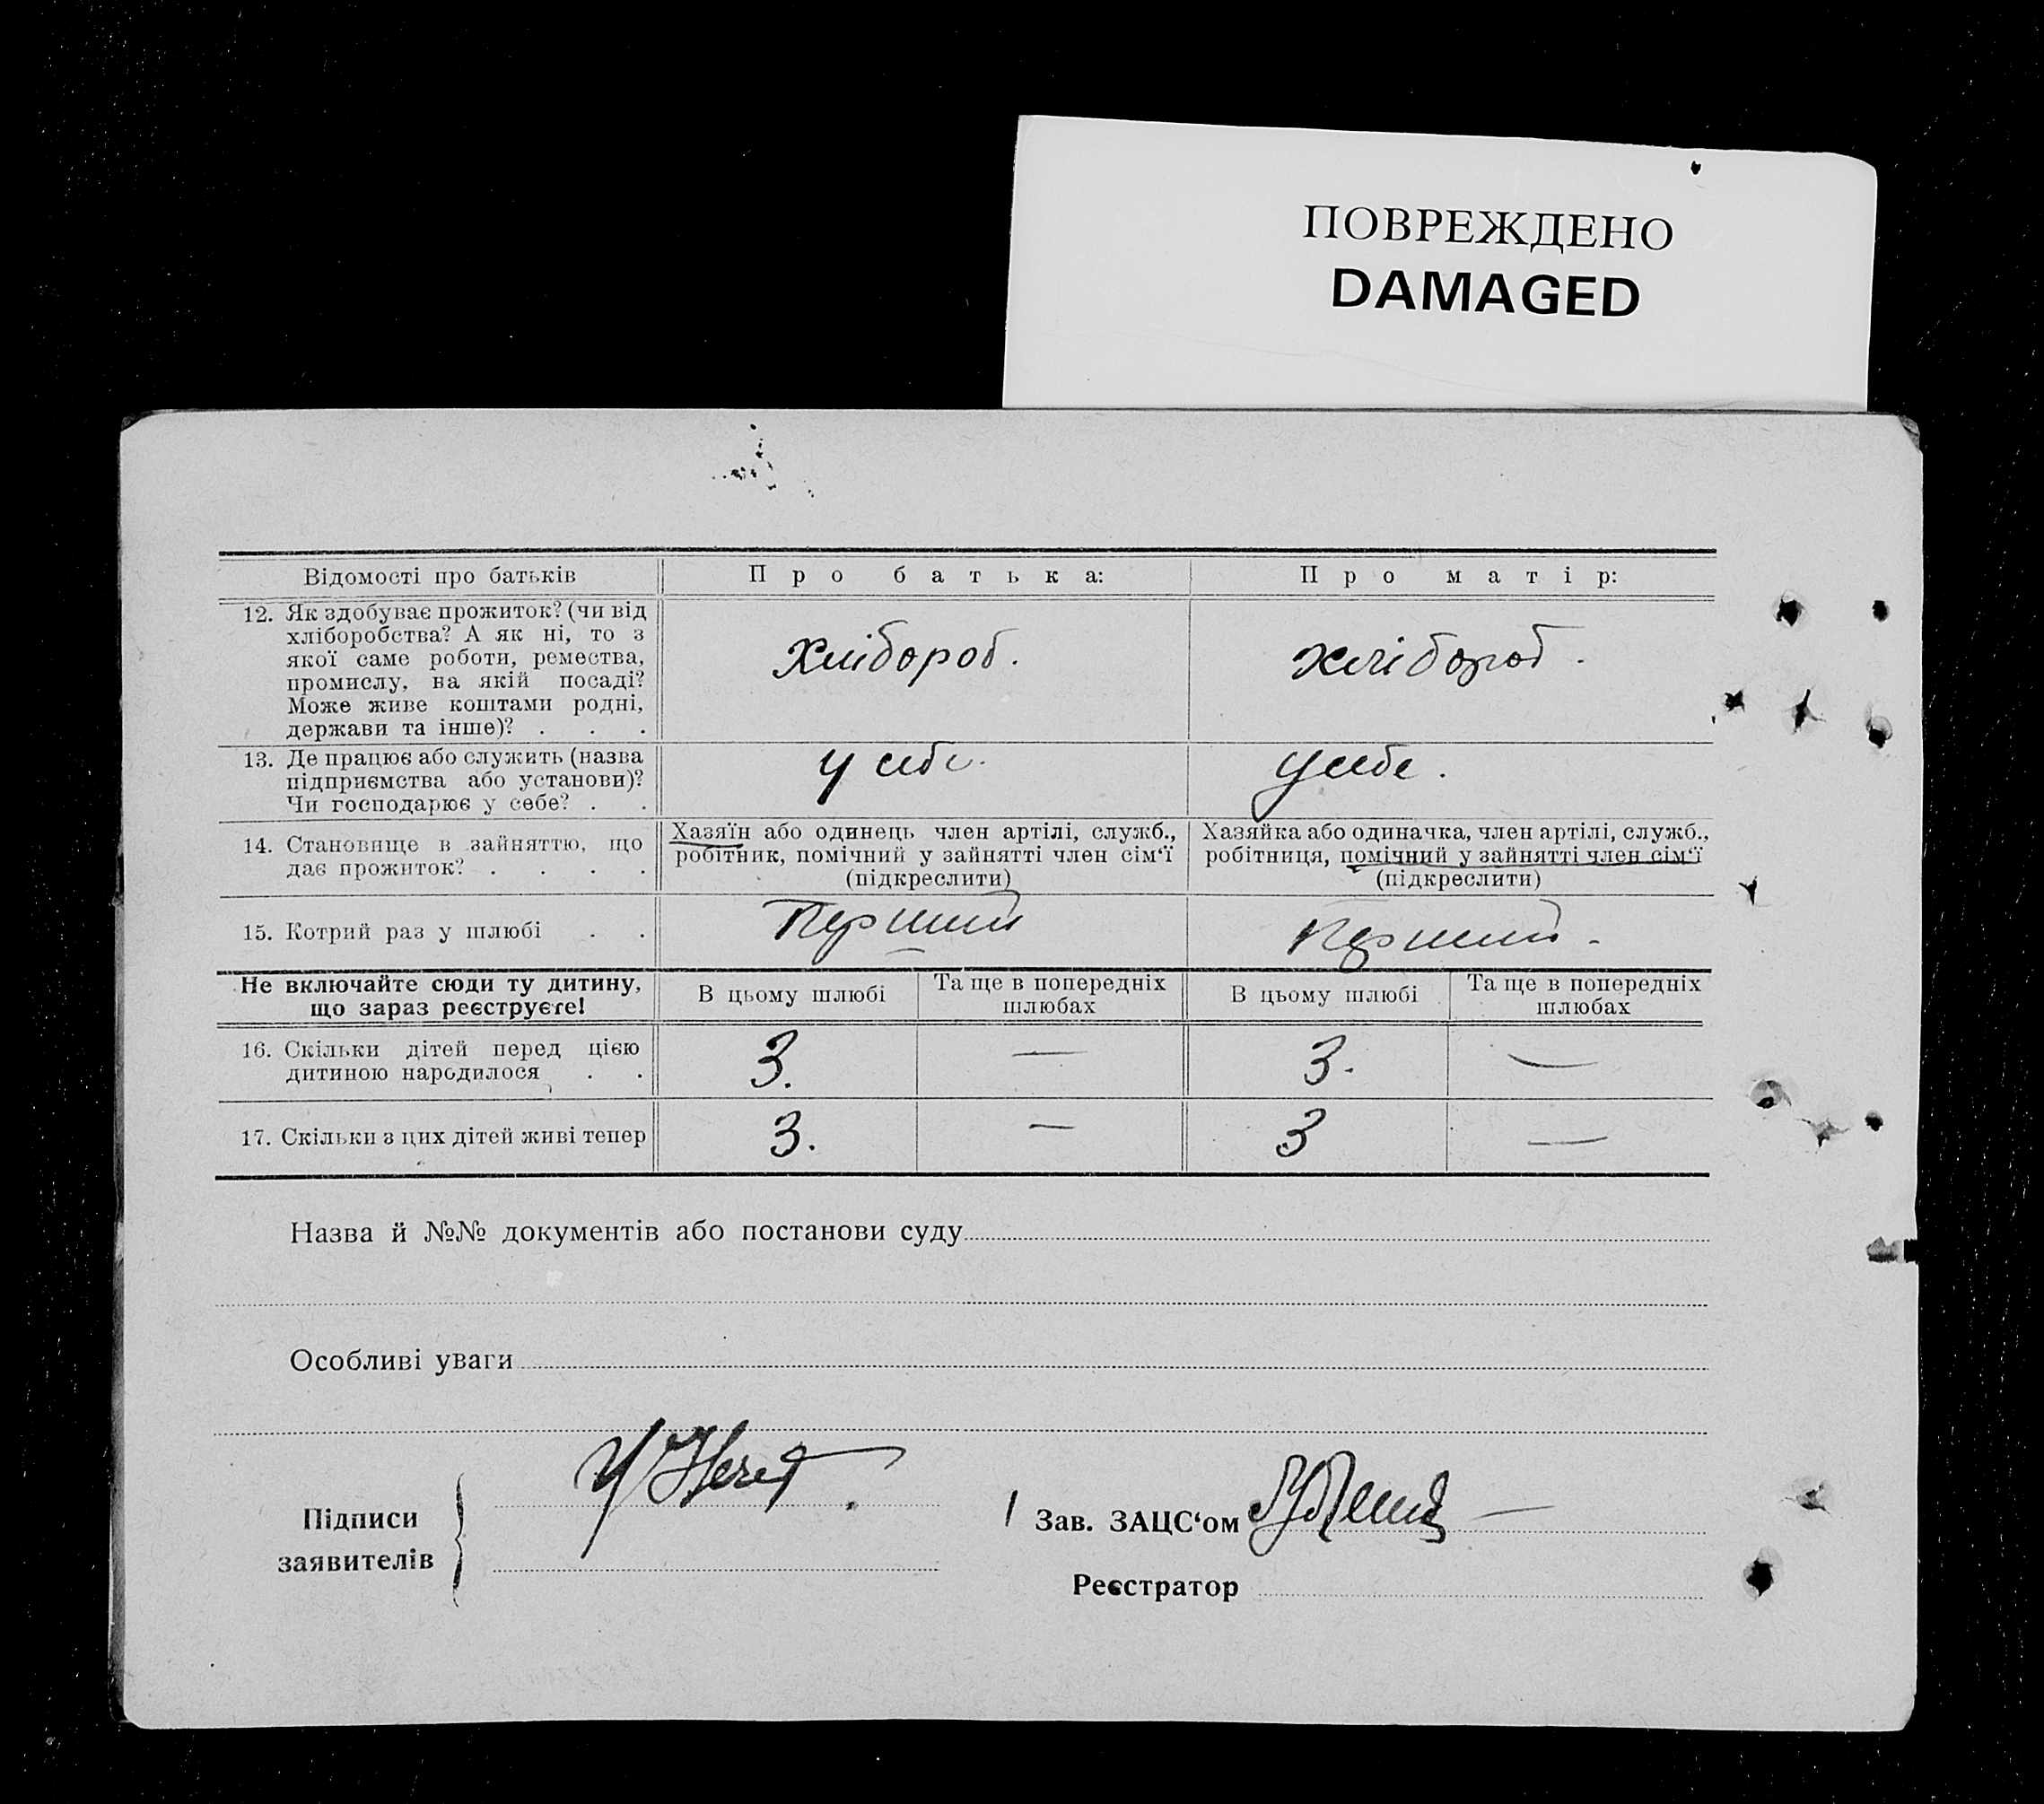 ПОВРЕЖДЕНО
DAMAGED
Відомості про батьків
Про батька:
Про матір:
12. Як здобуває прожиток? (чи від
хліборобства? А як ні, то з
якої саме роботи, ремества,
промислу, на якій посаді?
Може живе коштами родні,
держави та інше)? . . .
Хлібороб.
хлібороб.
13. Де працює або служить (назва
підприємства або установи)?
Чи господарює у себе? . .
у себе.
у себе.
14. Становище в зайняттю, що
дає прожиток? . . . .
Хазяїн або одинець член артілі, служб.,
робітник, помічний у зайнятті член сім‘ї
(підкреслити)
Хазяйка або одиначка, член артілі, служб.,
робітниця, помічний у зайнятті член сім‘ї
(підкреслити)
15. Котрий раз у шлюбі . .
Перший
Перший.
Не включайте сюди ту дитину,
що зараз реєструєте!
В цьому шлюбі
Та ще в попередніх
шлюбах
В цьому шлюбі
Та ще в попередніх
шлюбах
16. Скільки дітей перед цією
дитиною народилося . .
3. — 3. —
17. Скільки з цих дітей живі тепер
3. — 3 —
Назва й №№ документів або постанови суду
Особливі уваги
Підписи
заявителів
Зав. ЗАЦС‘ом
Реєстратор